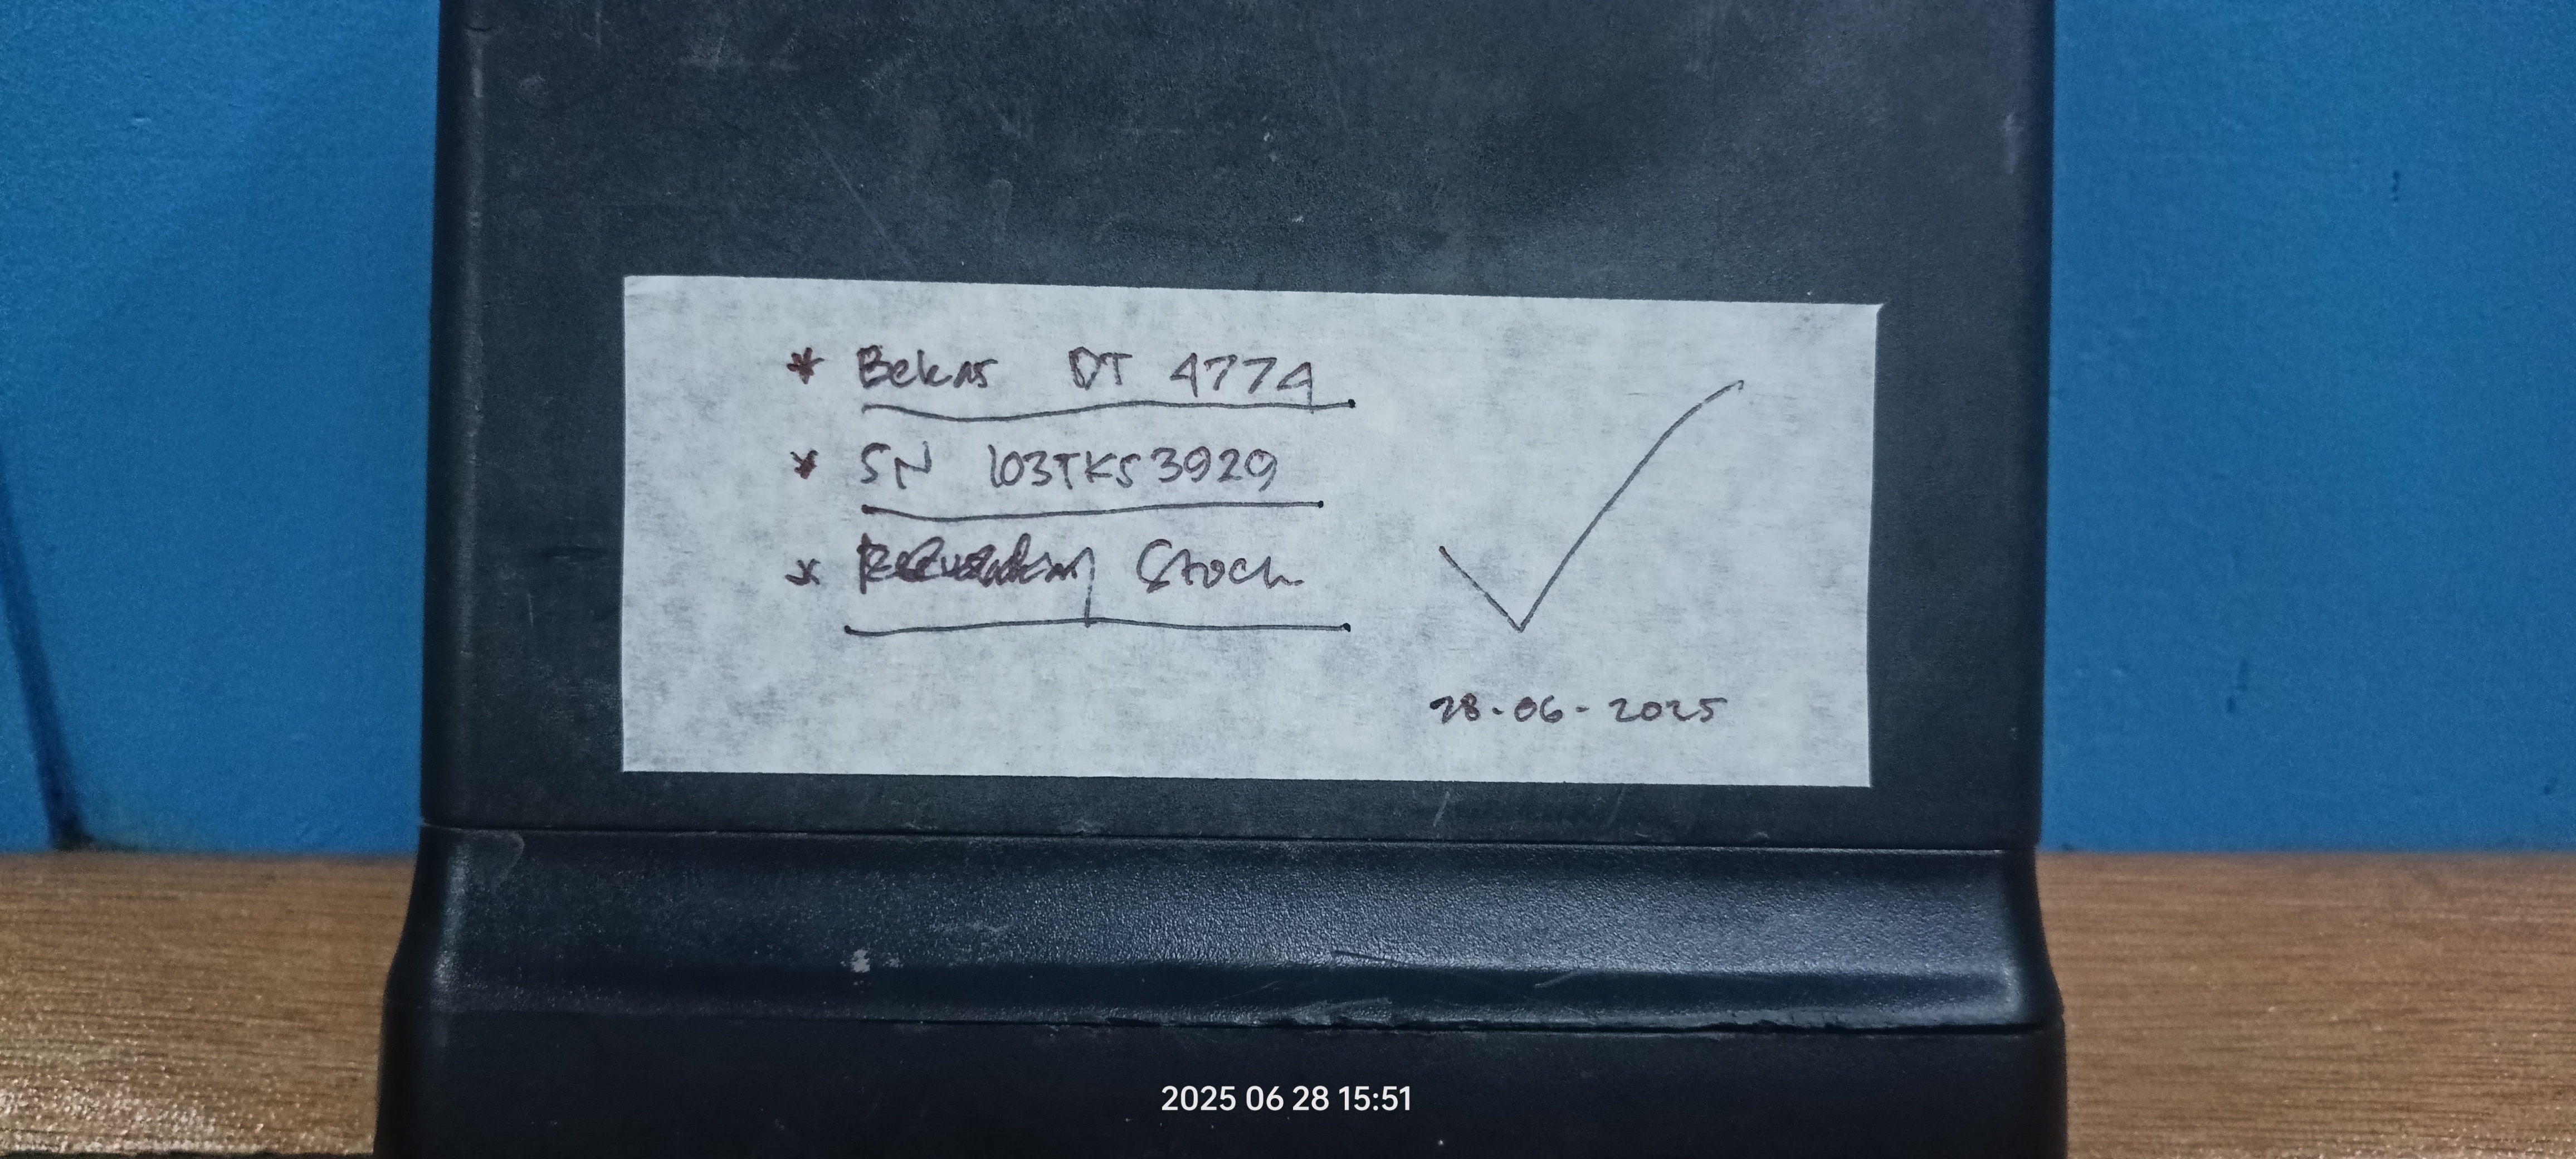 * Bekas DT 4774
* SN 103TKS3929
* Stock
28-06-2025
2025 06 28 15:51